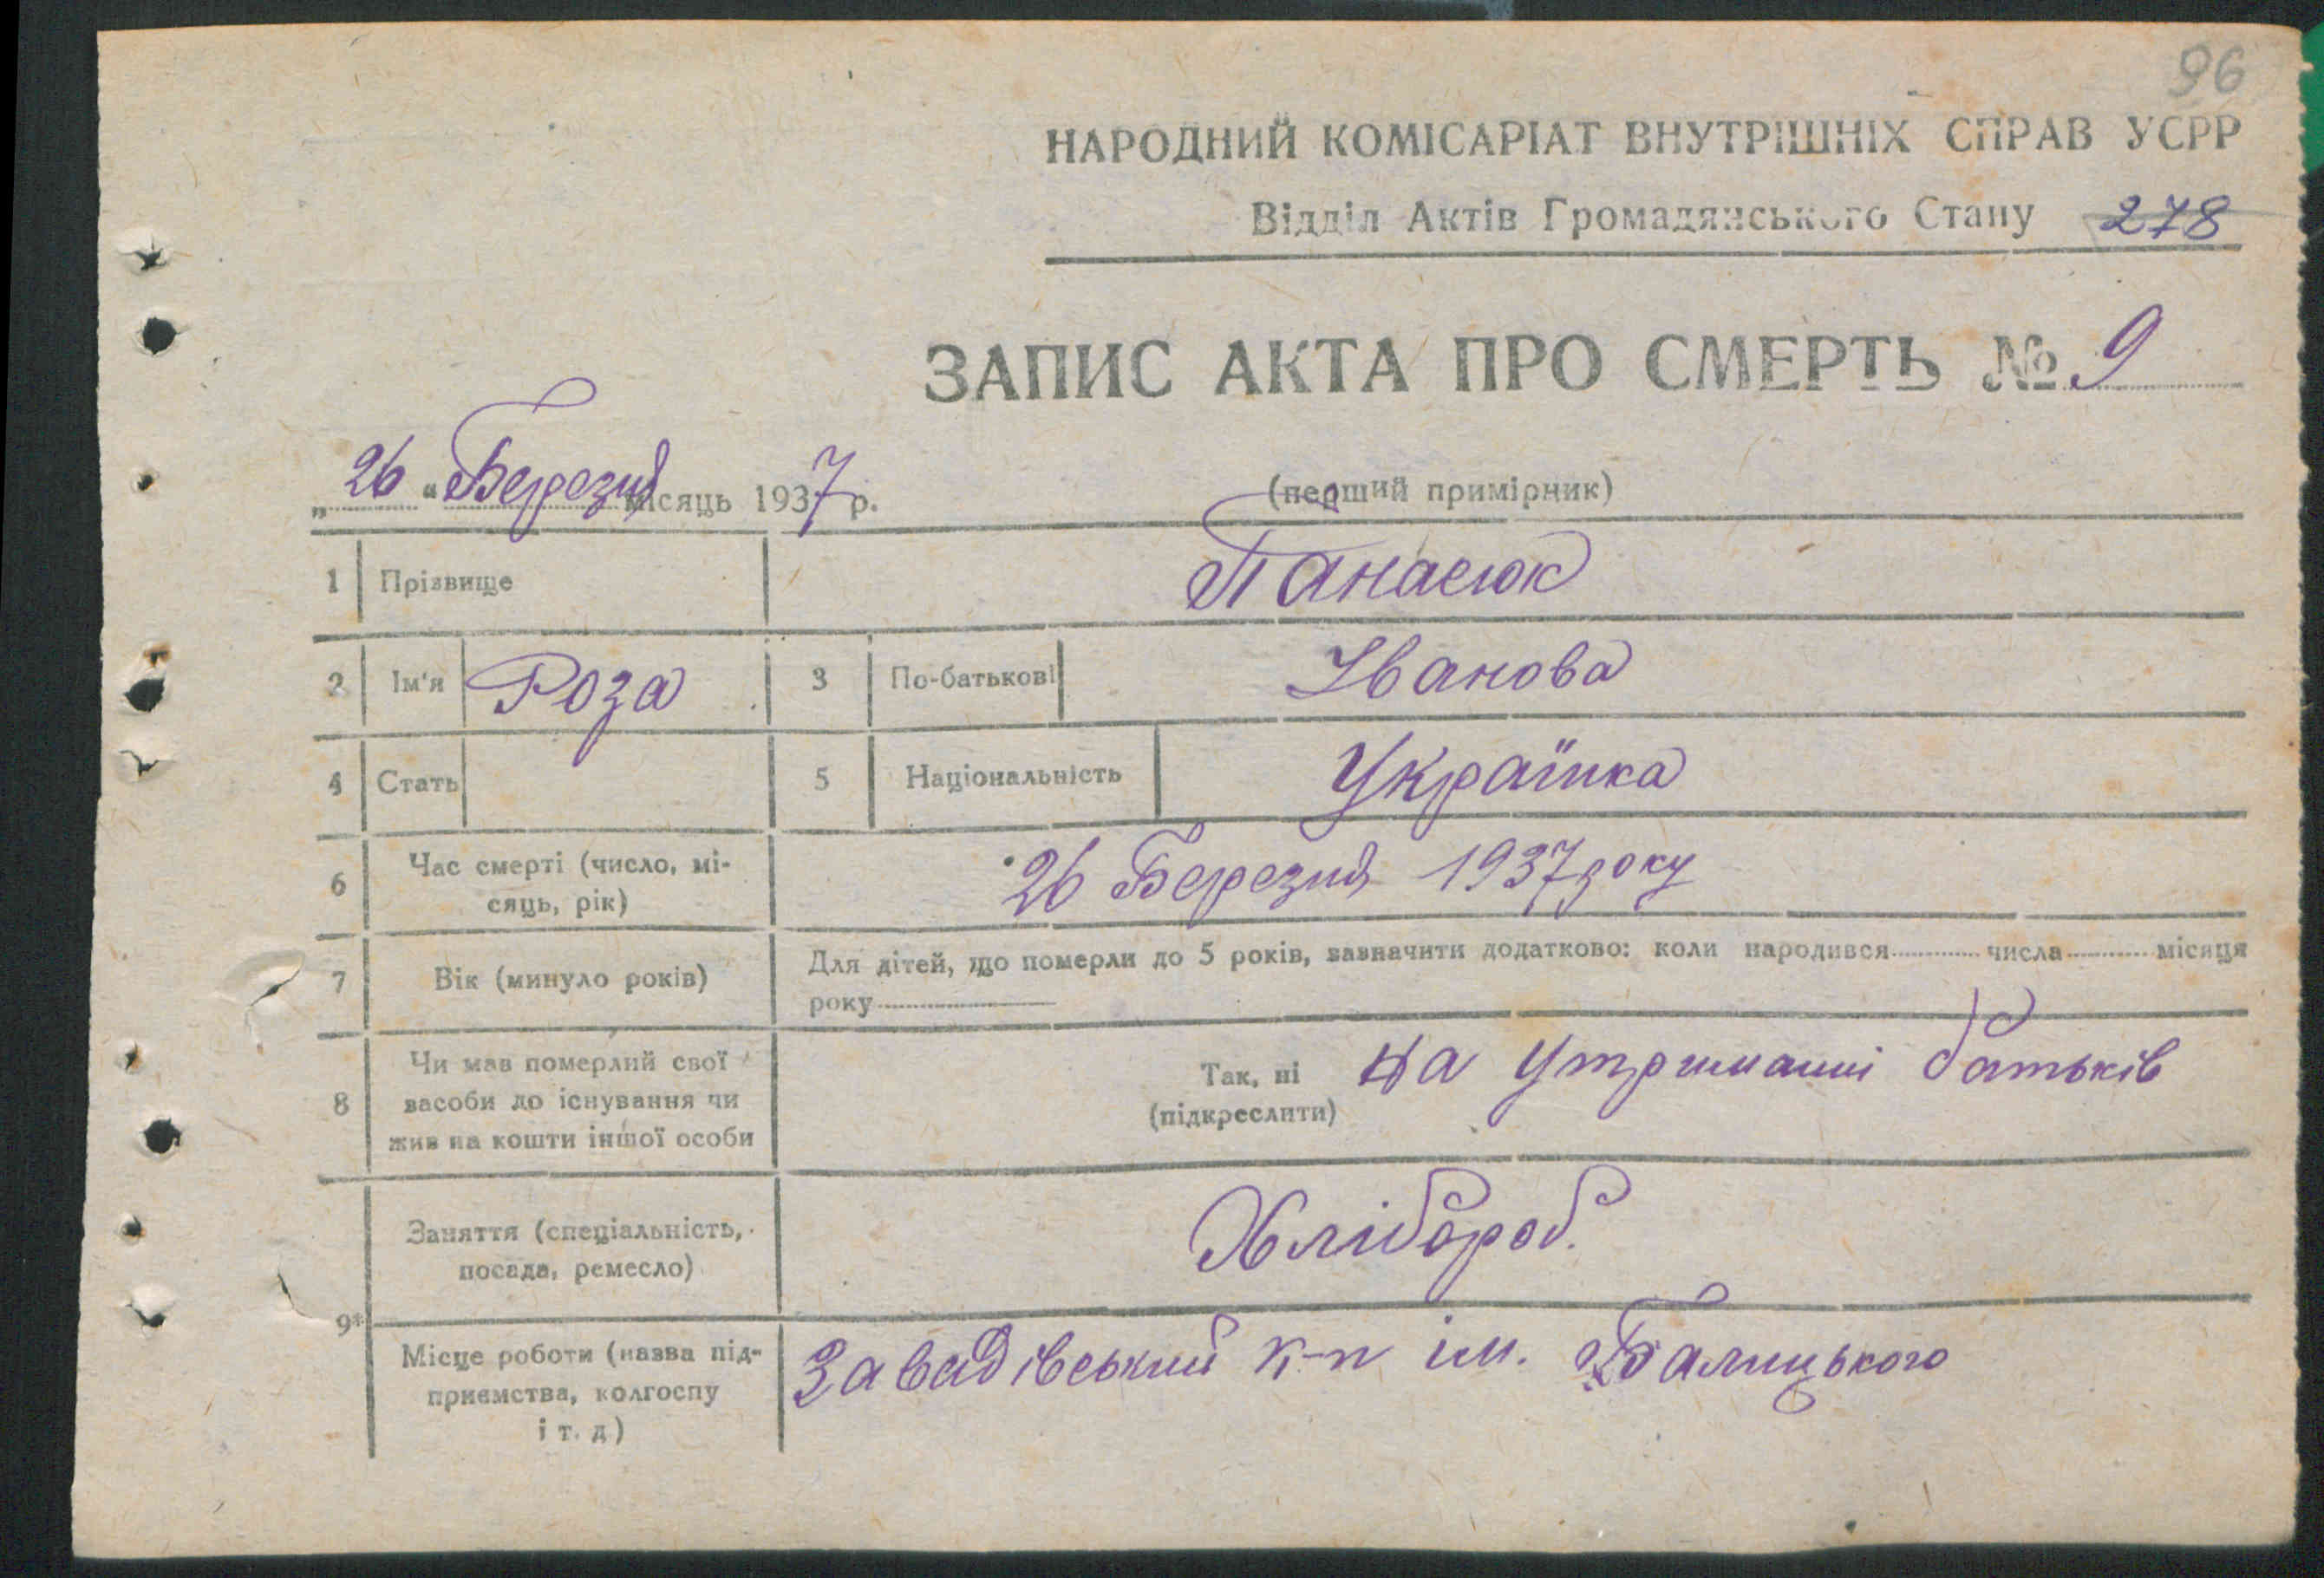 96
НАРОДНИЙ КОМІСАРІАТ ВНУТРІШНІХ СПРАВ УСРР
Відділ Актів Громадянського Стану 278
ЗАПИС АКТА ПРО СМЕРТЬ № 9
„26“ Березня місяць 1937 р.
(перший примірник)
1 Прізвище Панасюк
2 Ім'я Роза 3 По-батькові Іванова
4 Стать 5 Національність Українка
6 Час смерті (число, мі-
сяць, рік) 26 Березня 1937 року
7 Вік (минуло років) Для дітей, що померли до 5 років, зазначити додатково: коли народився числа місяця
року
8 Чи мав померлий свої
засоби до існування чи
жив на кошти іншої особи
Так, ні На утриманні батьків
(підкреслити)
9* Заняття (спеціальність,
посада, ремесло) Хлібороб.
Місце роботи (назва під-
приємства, колгоспу
і т. д)
Завадівський к-п ім. Балицького